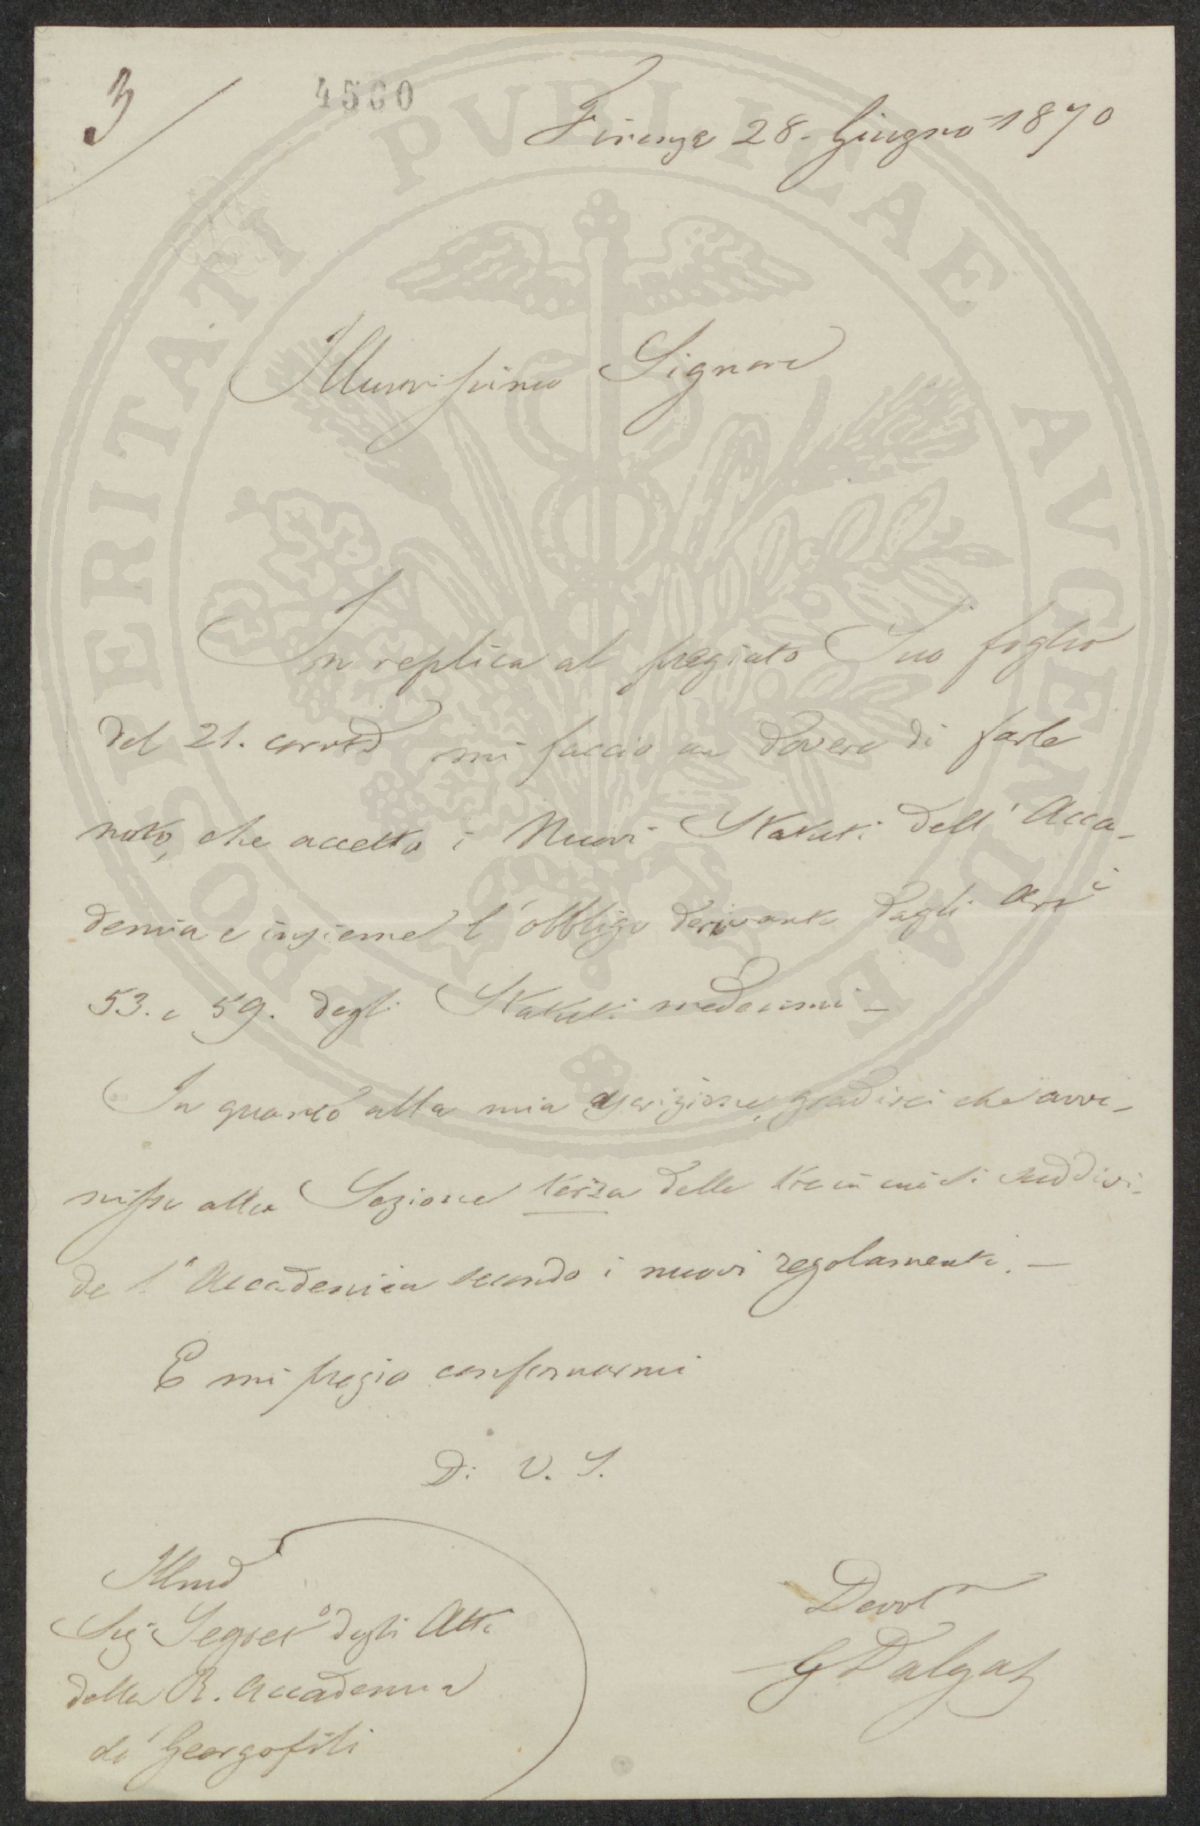 3
4560
Firenze 28. Giugno 1870
Illustrissimo Signore
In replica al pregiato Suo foglio
del 21. corrte mi faccio un dovere di farle
noto, che accetto i Nuovi Statuti dell' Acca-
demia e insieme l' obbligo derivante dagli Arti
53. e 59. degli Statuti medesimi -
In quanto alla mia ascrizione, gradirei che avve-
nisse alla Sezione terza delle tre in cui si suddivi-
de l' Accademia secondo i nuovi regolamenti. -
E mi pregio confermarmi
Di V. S.
Illmo
Sigr Segreto degli Atti
della R. Accademia
de' Georgofili
Devot
G Dalgas
PROSPERITATI PVBLICAE AVGENDAE